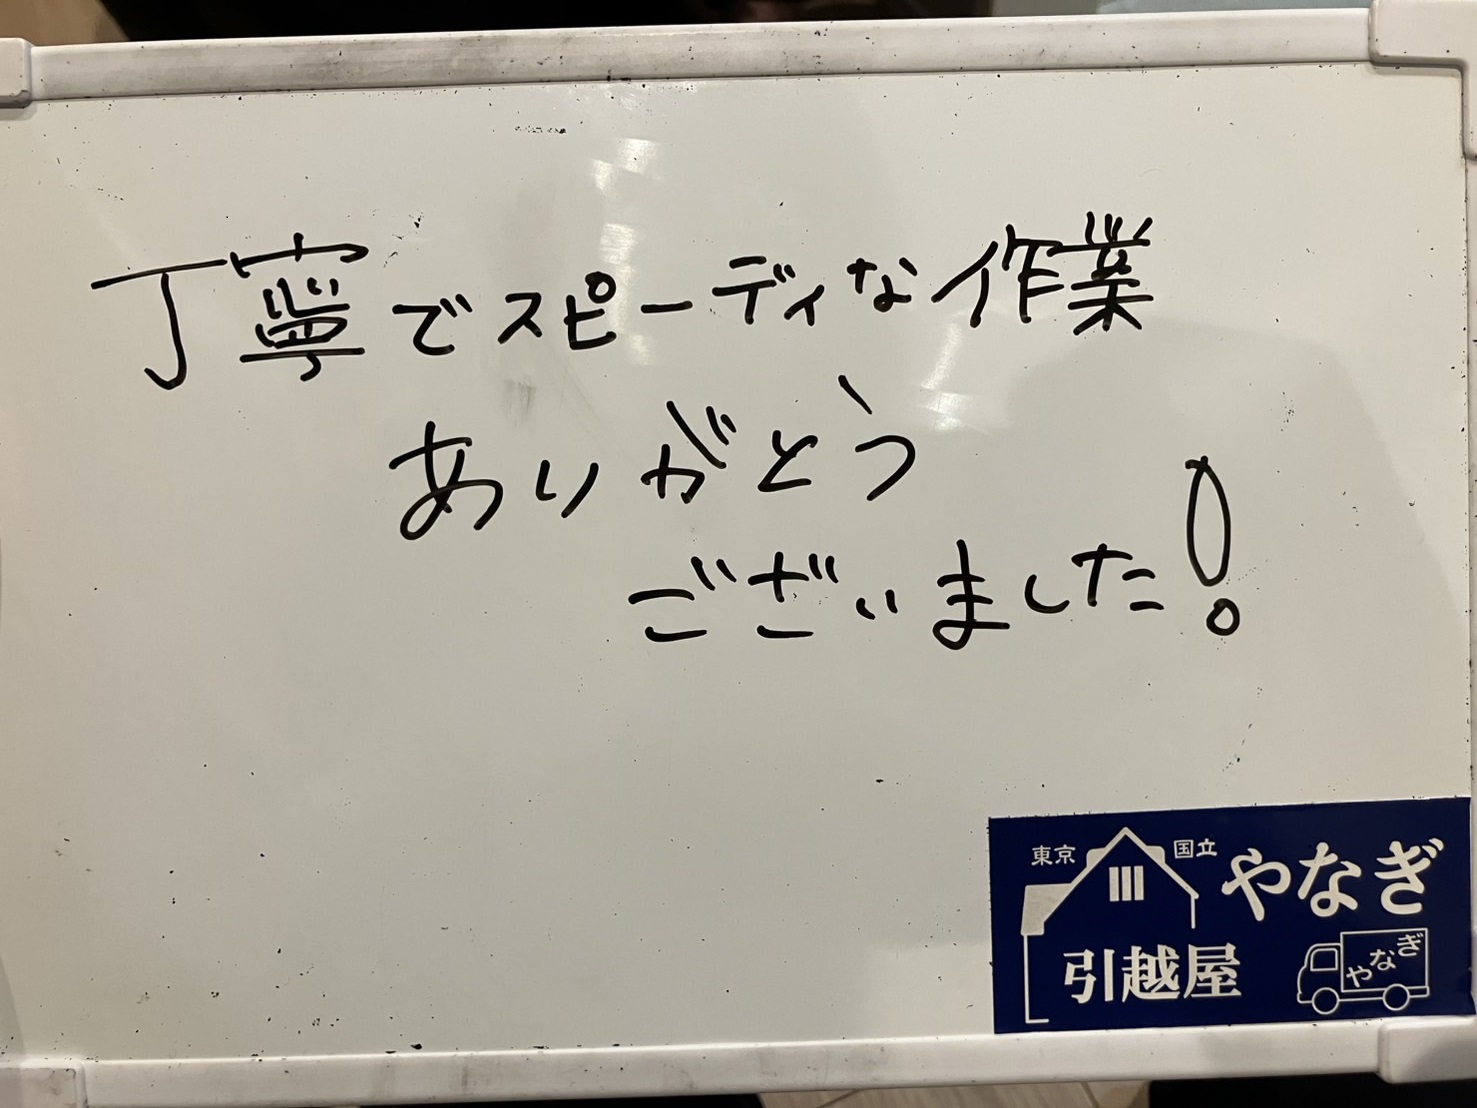 丁寧でスピーディな作業
ありがとう
ございました!
東京 国立 やなぎ
引越屋 やなぎ